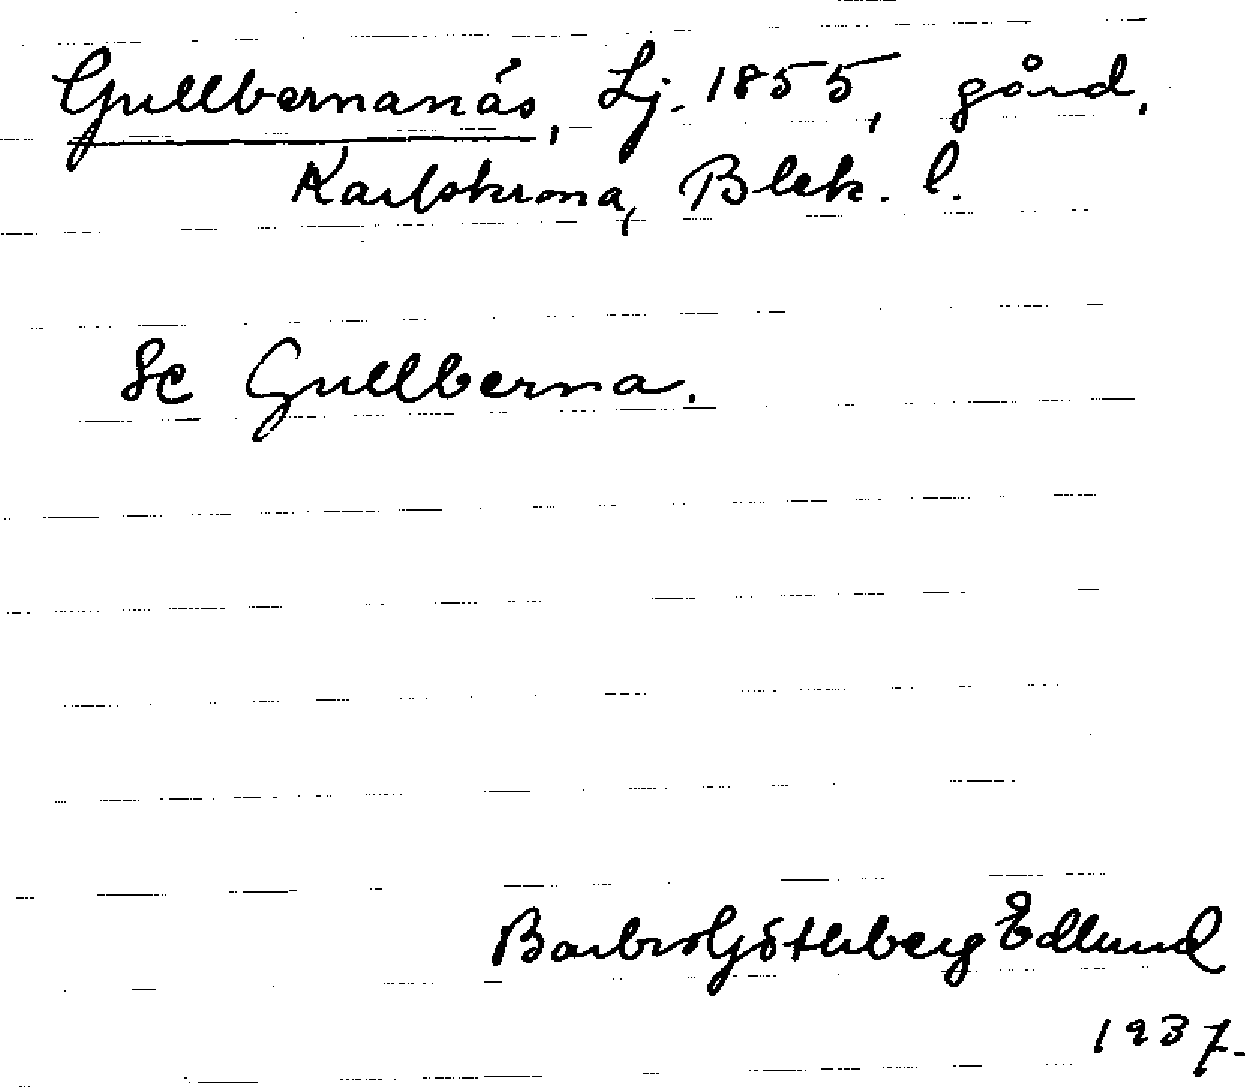 Gullbernanäs, Lj. 1855, gård,
Karlskrona, Blek. l.
Se Gullberna.
Barbro Götherberg Edlund
1937.